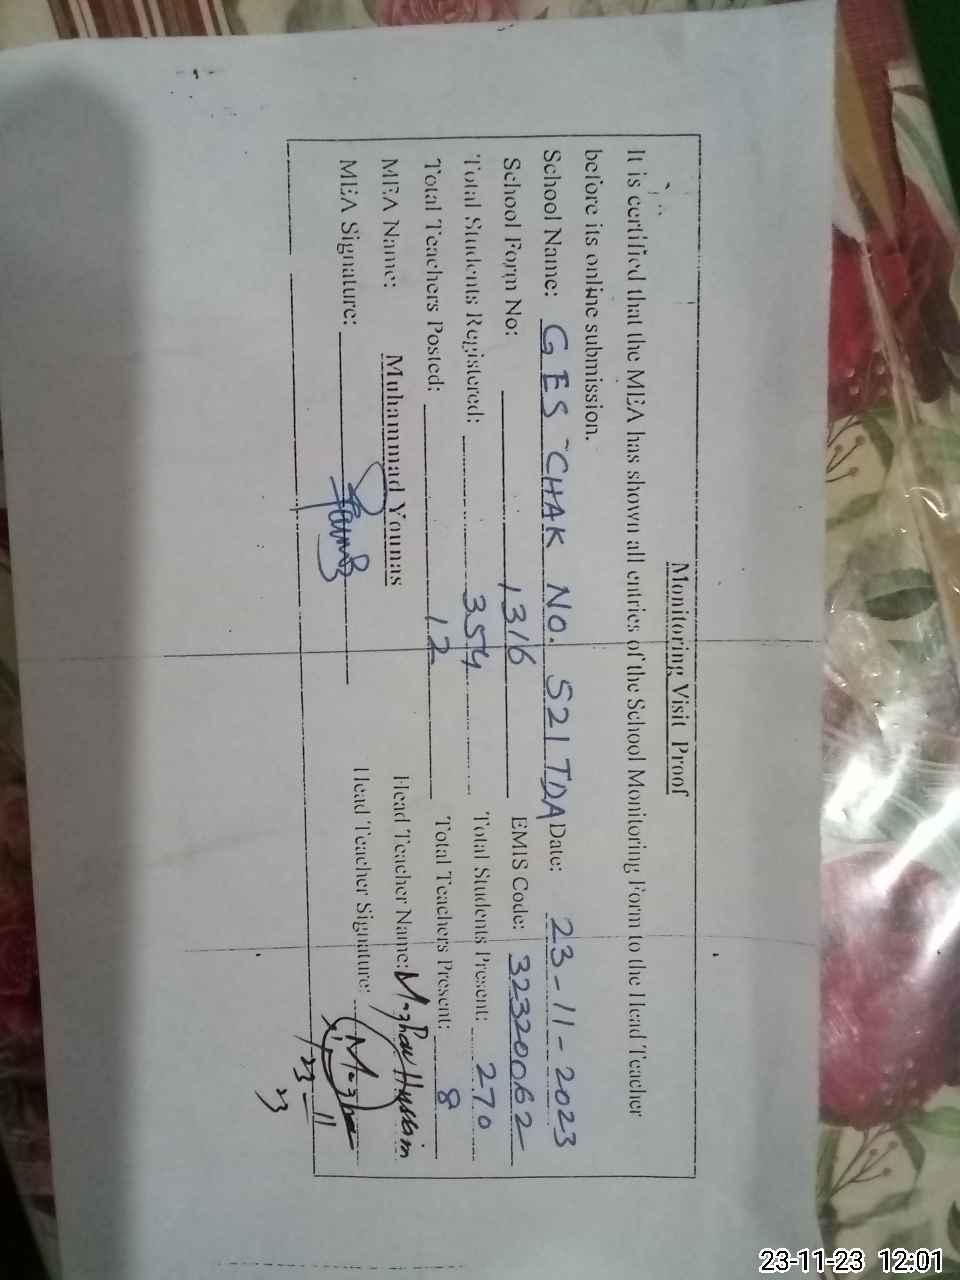 Monitoring Visit Proof
It is certified that the MEA has shown all entries of the School Monitoring Form to the Head Teacher
before its online submission.
School Name: GES CHAK NO. 521 TDA Date: 23-11-2023
School Form No: 1316 EMIS Code: 32320062
Total Students Registered: 354 Total Students Present: 270
Total Teachers Posted: 12 Total Teachers Present: 8
MEA Name: Muhammad Younas Head Teacher Name: Mazhar Hussain
MEA Signature: Head Teacher Signature: Mazhar
23-11
23
23-11-23 12:01